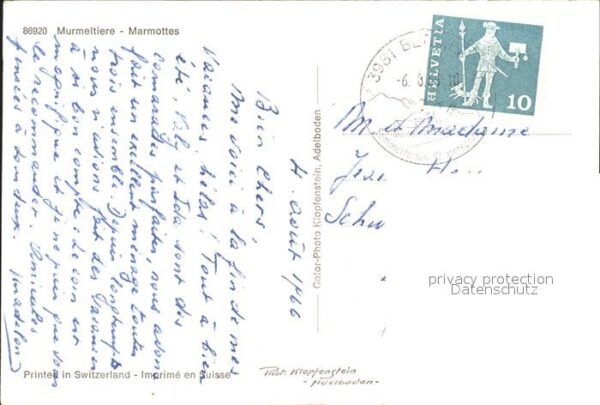 86920 Murmeltiere - Marmottes
4. août 1966
Bien chers,
Me voici à la fin de mes
vacances, hélas! Tout a bien
été. Vely et Ida sont des
camarades parfaites, nous avons
fait un excellent ménage toutes
trois ensemble. Depuis longtemps
nous n'avions fait des vacances
à si bon compte. Le coin est
magnifique et je ne puis que vous
le recommander. Amicales
pensées à tous deux. Madelon
Color-Photo Klopfenstein, Adelboden
3961
-6. 8.
HELVETIA
10
M. et Madame
Jean
Schu
privacy protection
Datenschutz
Printed in Switzerland - Imprimé en Suisse
Phot. Klopfenstein
- Adelboden -